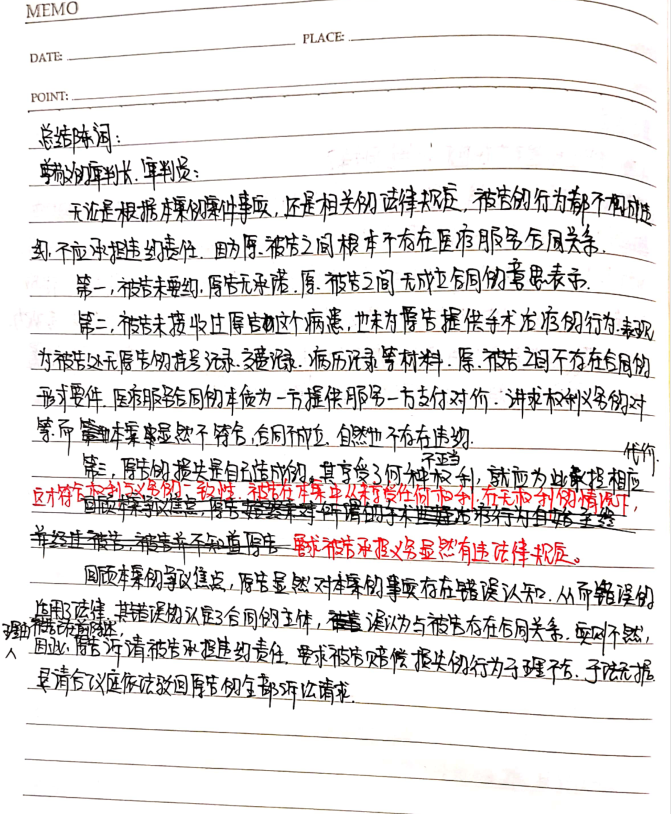 MEMO
DATE: PLACE:
POINT:
总结陈词:
尊敬的审判长、审判员:
无论是根据本案的案件事实,还是相关的法律规定,被告的行为都不构成违
约,不应承担违约责任.因为原、被告之间根本不存在医疗服务合同关系.
第一,被告未要约,原告无承诺.原、被告之间无成立合同的意思表示.
第二,被告未接收过原告的这个病患,也未为原告提供手术治疗的行为.表现
为被告处无原告的挂号记录、交费记录、病历记录等材料.原、被告之间不存在合同的
形式要件.医疗服务合同的本质为一方提供服务一方支付对价.讲求权利义务的对
等.而本案显然不符合,合同不成立,自然也不存在违约.
第三,原告的损失是自己造成的.其享受了何种不正当权利,就应为此承担相应代价.
这才符合权利义务的一致性.被告在本案中从未享受任何权利,在无权利的情况下,
要求被告承担义务显然有违法律规定。
回顾本案的争议焦点,原告显然对本案的事实存在错误认知.从而错误的
适用了法律.其错误的认定了合同的主体,误以为与被告存在合同关系.实则不然,
因此,原告诉请被告承担违约责任,要求被告赔偿损失的行为于理不合、于法无据
恳请合议庭依法驳回原告的全部诉讼请求.